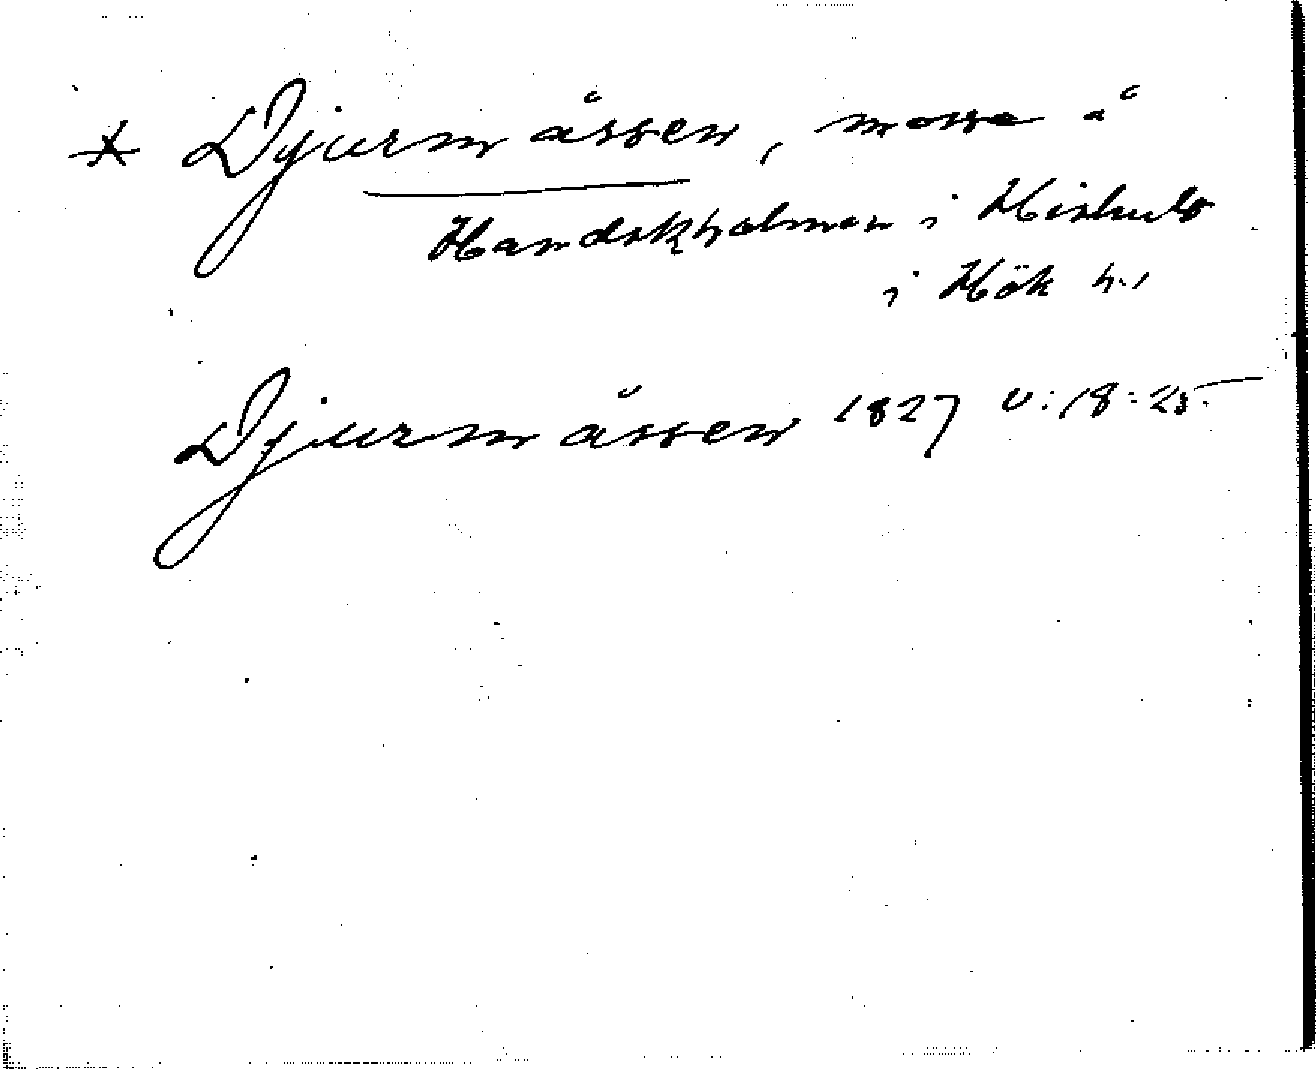 * Djurmåssen, mosse å
Handskholmen i Hishult
i Hök h.
Djurmåssen 1827 v:18:25